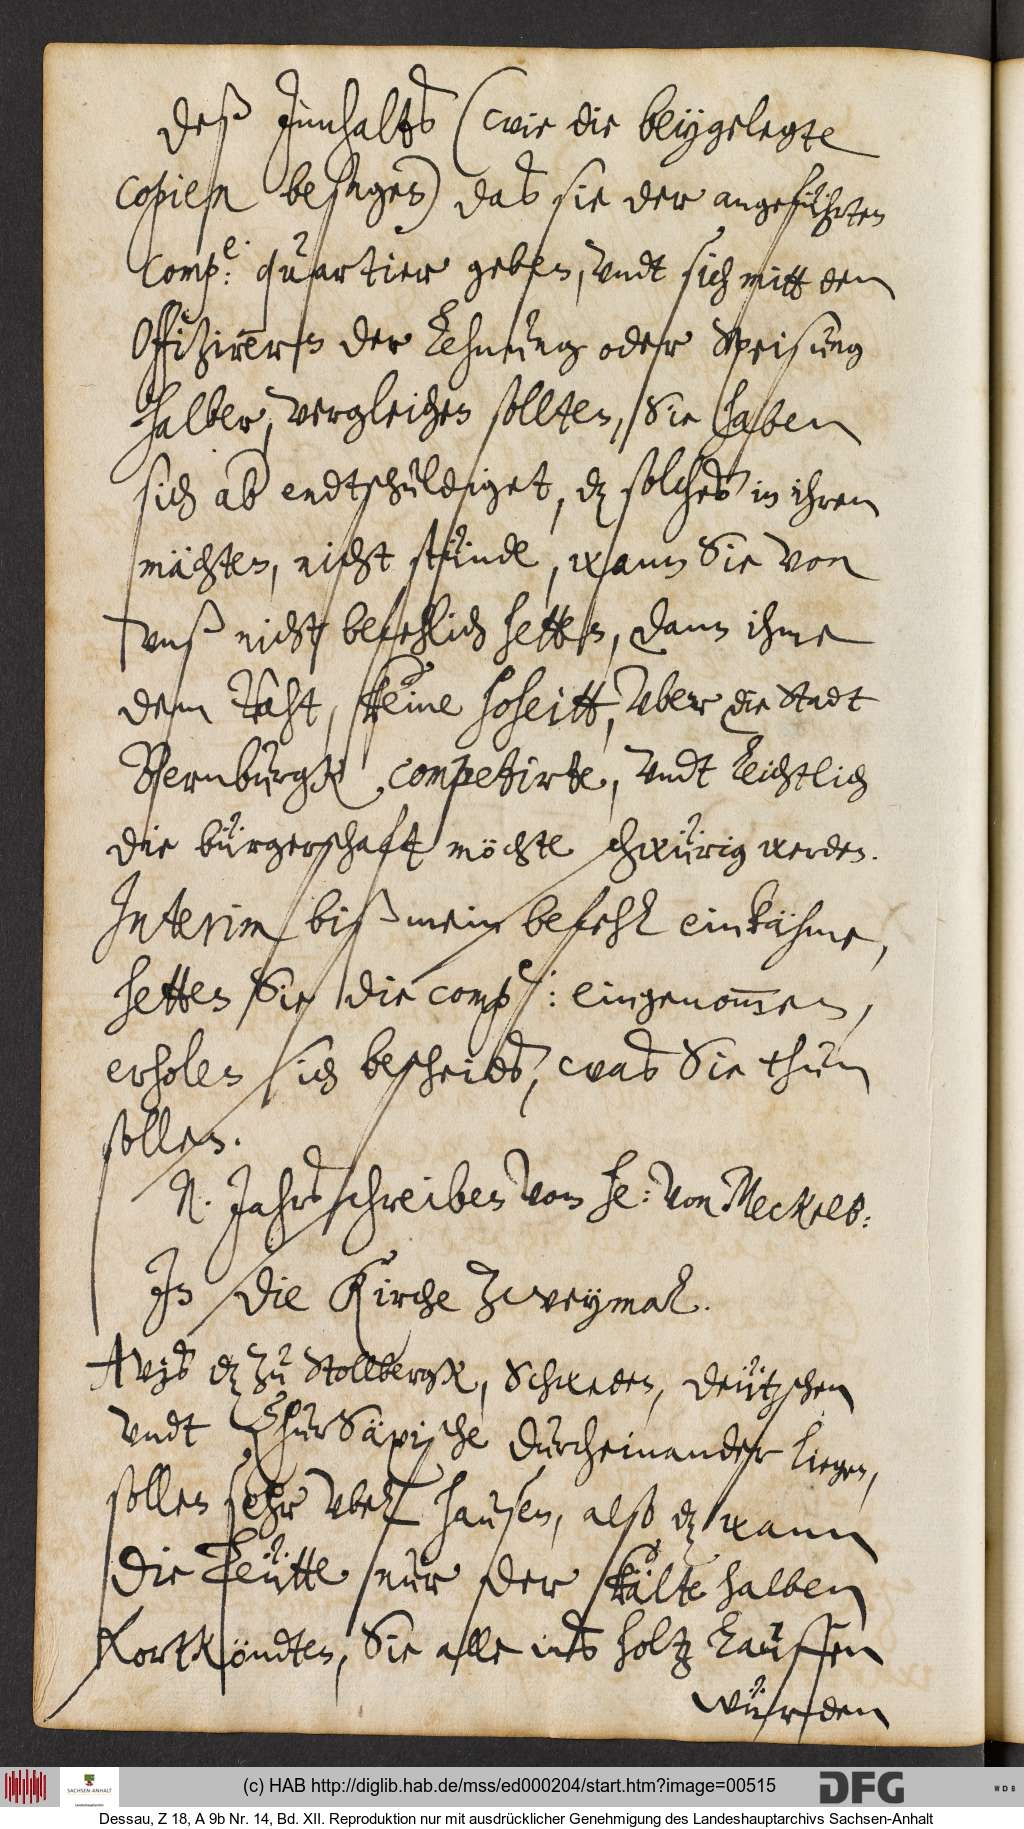 deß Innhalts (wie die beygelegte
copien besagen) das sie der angeführten
Comp.e: quartier geben, undt sich mitt den
Offizirern der Lehnung oder Speisung
halber, vergleichen sollten, Sie haben
sich ab endtschuldiget, dz solches in ihren
mächten, nicht stünde, wann Sie von
unß nicht befehlich hetten, dann ihme
dem Raht, keine hoheitt, uber die Stadt
Bernburgk competirte, undt leichtlich
die bürgerschaft möchte schwürig werden.
Interim biß mein befehl einkähme,
hetten Sie die comp.: eingenommen,
erholen sich bescheids, was Sie thun
sollen.
N. Jahrsschreiben vom he: von Meckelb:
In die Kirche zweymal.
Avis dz zu Stollbergk, Schweden, deützschen
undt ChurSäxische durcheinander liegen,
sollen sehr ubel hausen, also dz wann
die Leütte nur der kälte halben
fortköndten, Sie alle ins holtz lauffen
würden
(c) HAB http://diglib.hab.de/mss/ed000204/start.htm?image=00515
SACHSEN-ANHALT
DFG
WDB
Dessau, Z 18, A 9b Nr. 14, Bd. XII. Reproduktion nur mit ausdrücklicher Genehmigung des Landeshauptarchivs Sachsen-Anhalt